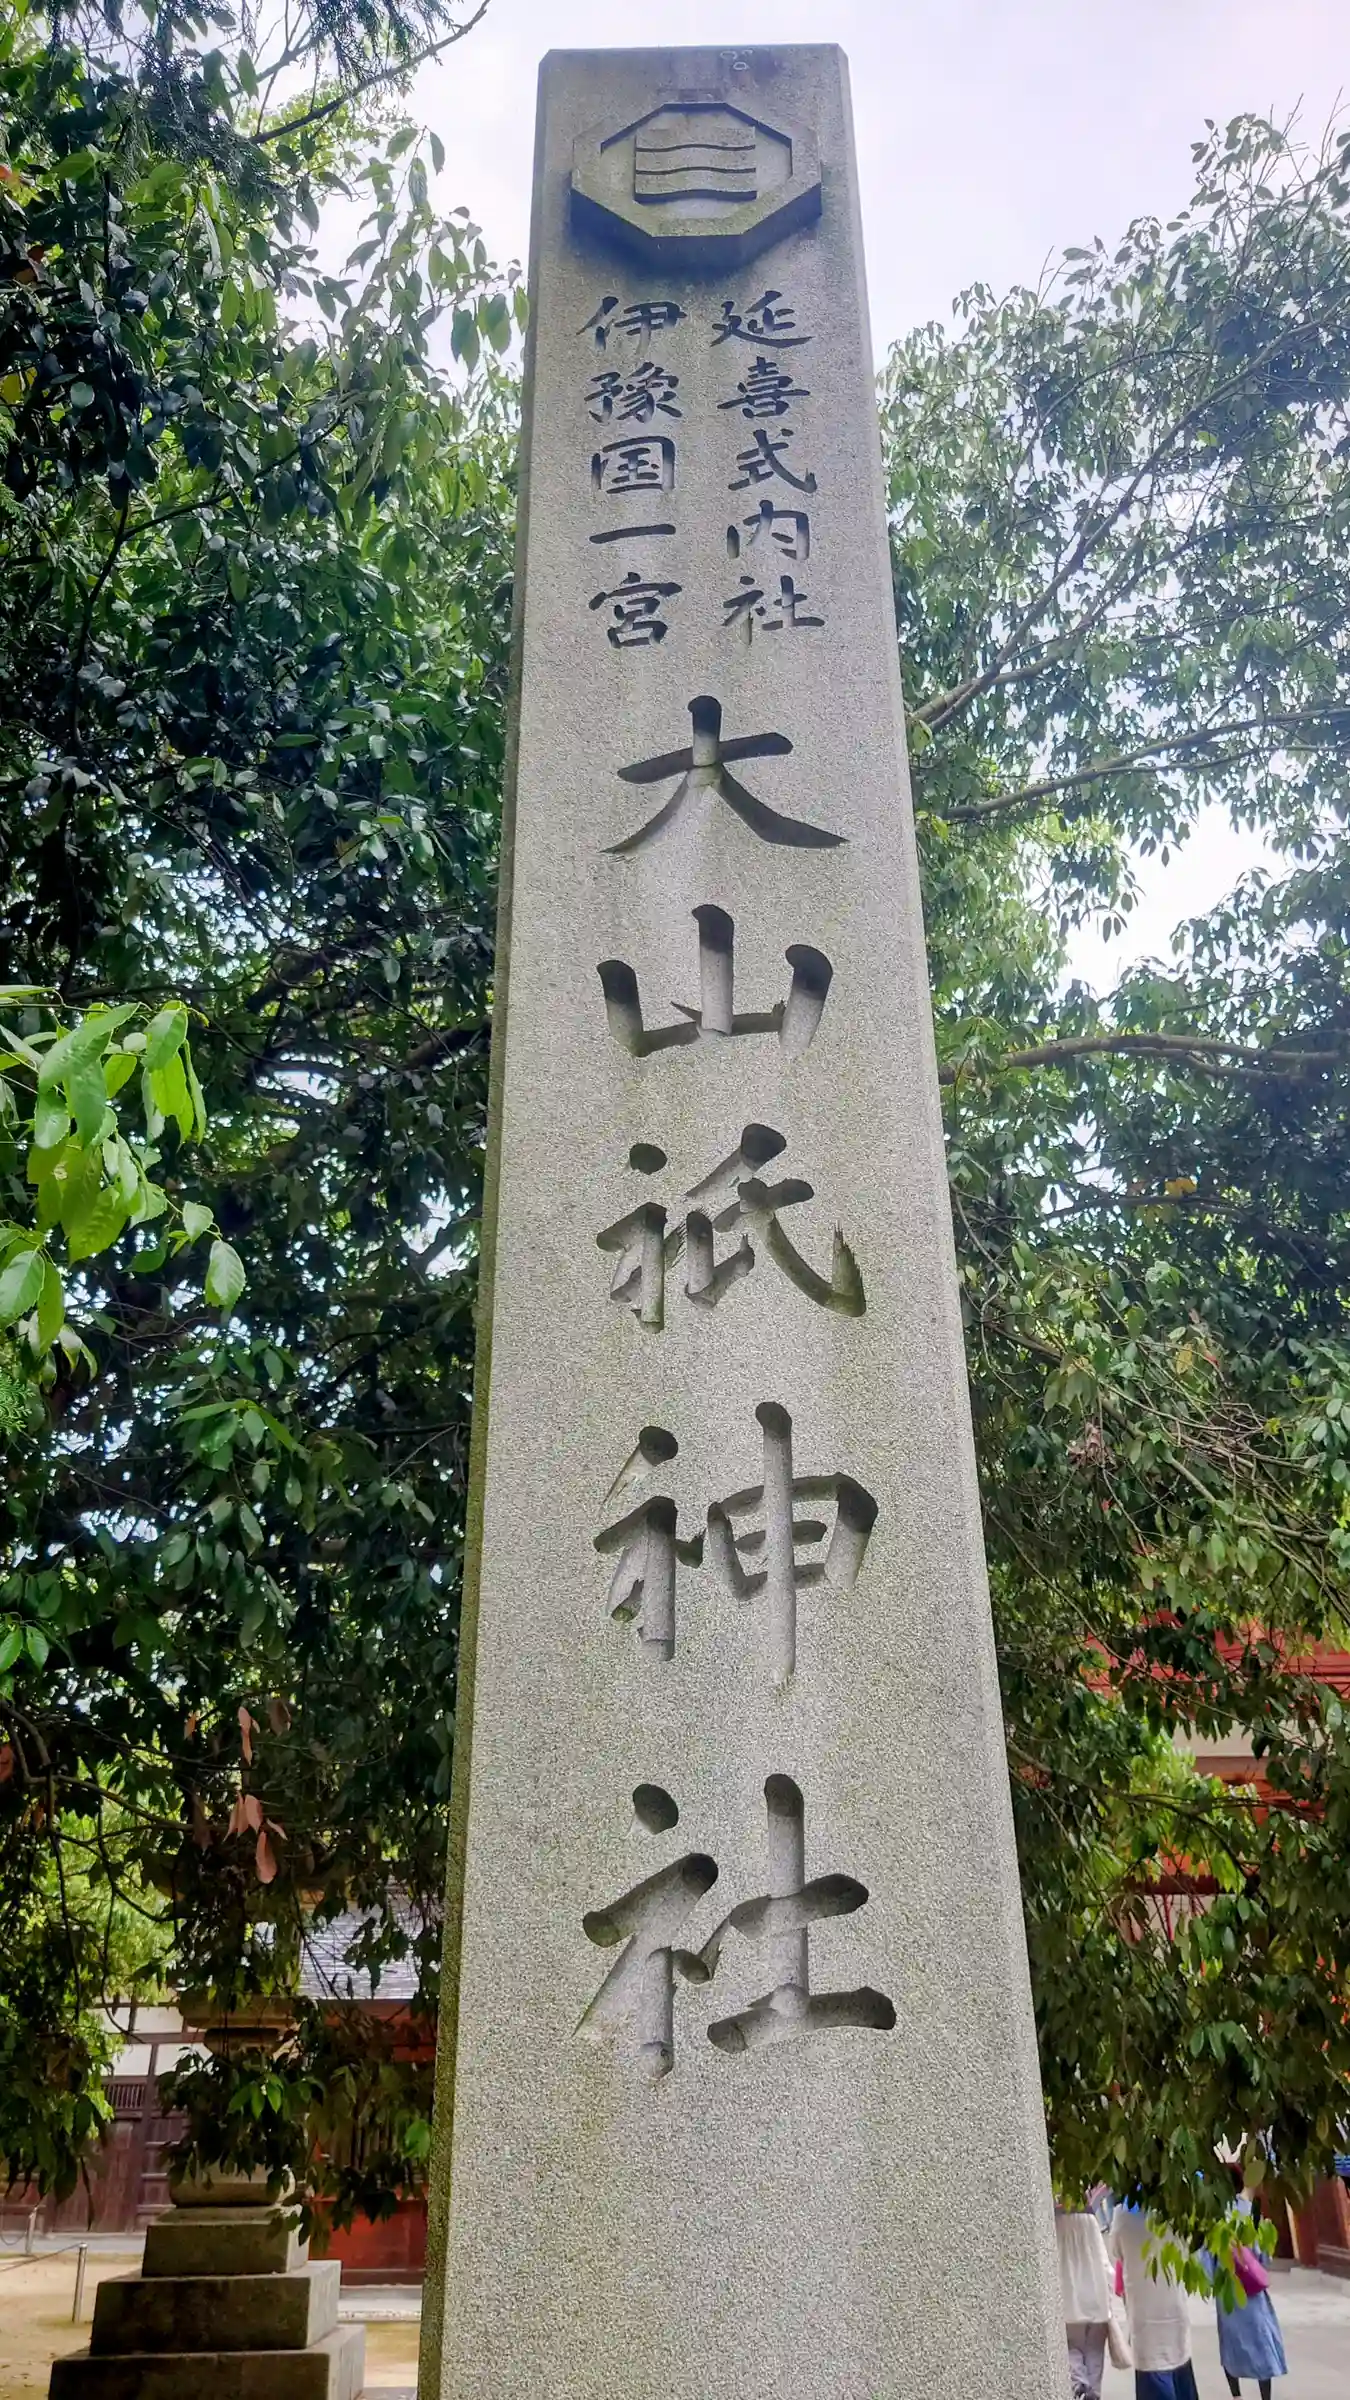 延喜式内社
伊豫国一宮
大山祇神社